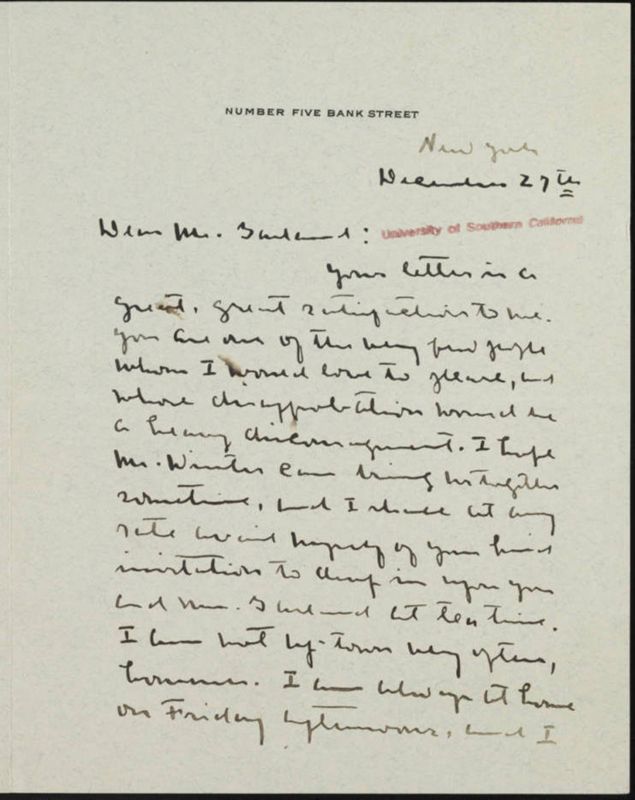 NUMBER FIVE BANK STREET
New York
December 27th
Dear Mr. Garland:
University of Southern California
Your letter is a
great, great satisfaction to me.
You are one of the very few people
whom I would love to please, and
whose disapprobation would be
a heavy discouragement. I hope
Mr. Winter can bring us together
sometime, and I shall at any
rate avail myself of your kind
invitation to drop in upon you
and Mrs. Garland at tea time.
I am not up-town very often,
however. I am always at home
on Friday afternoons, and I